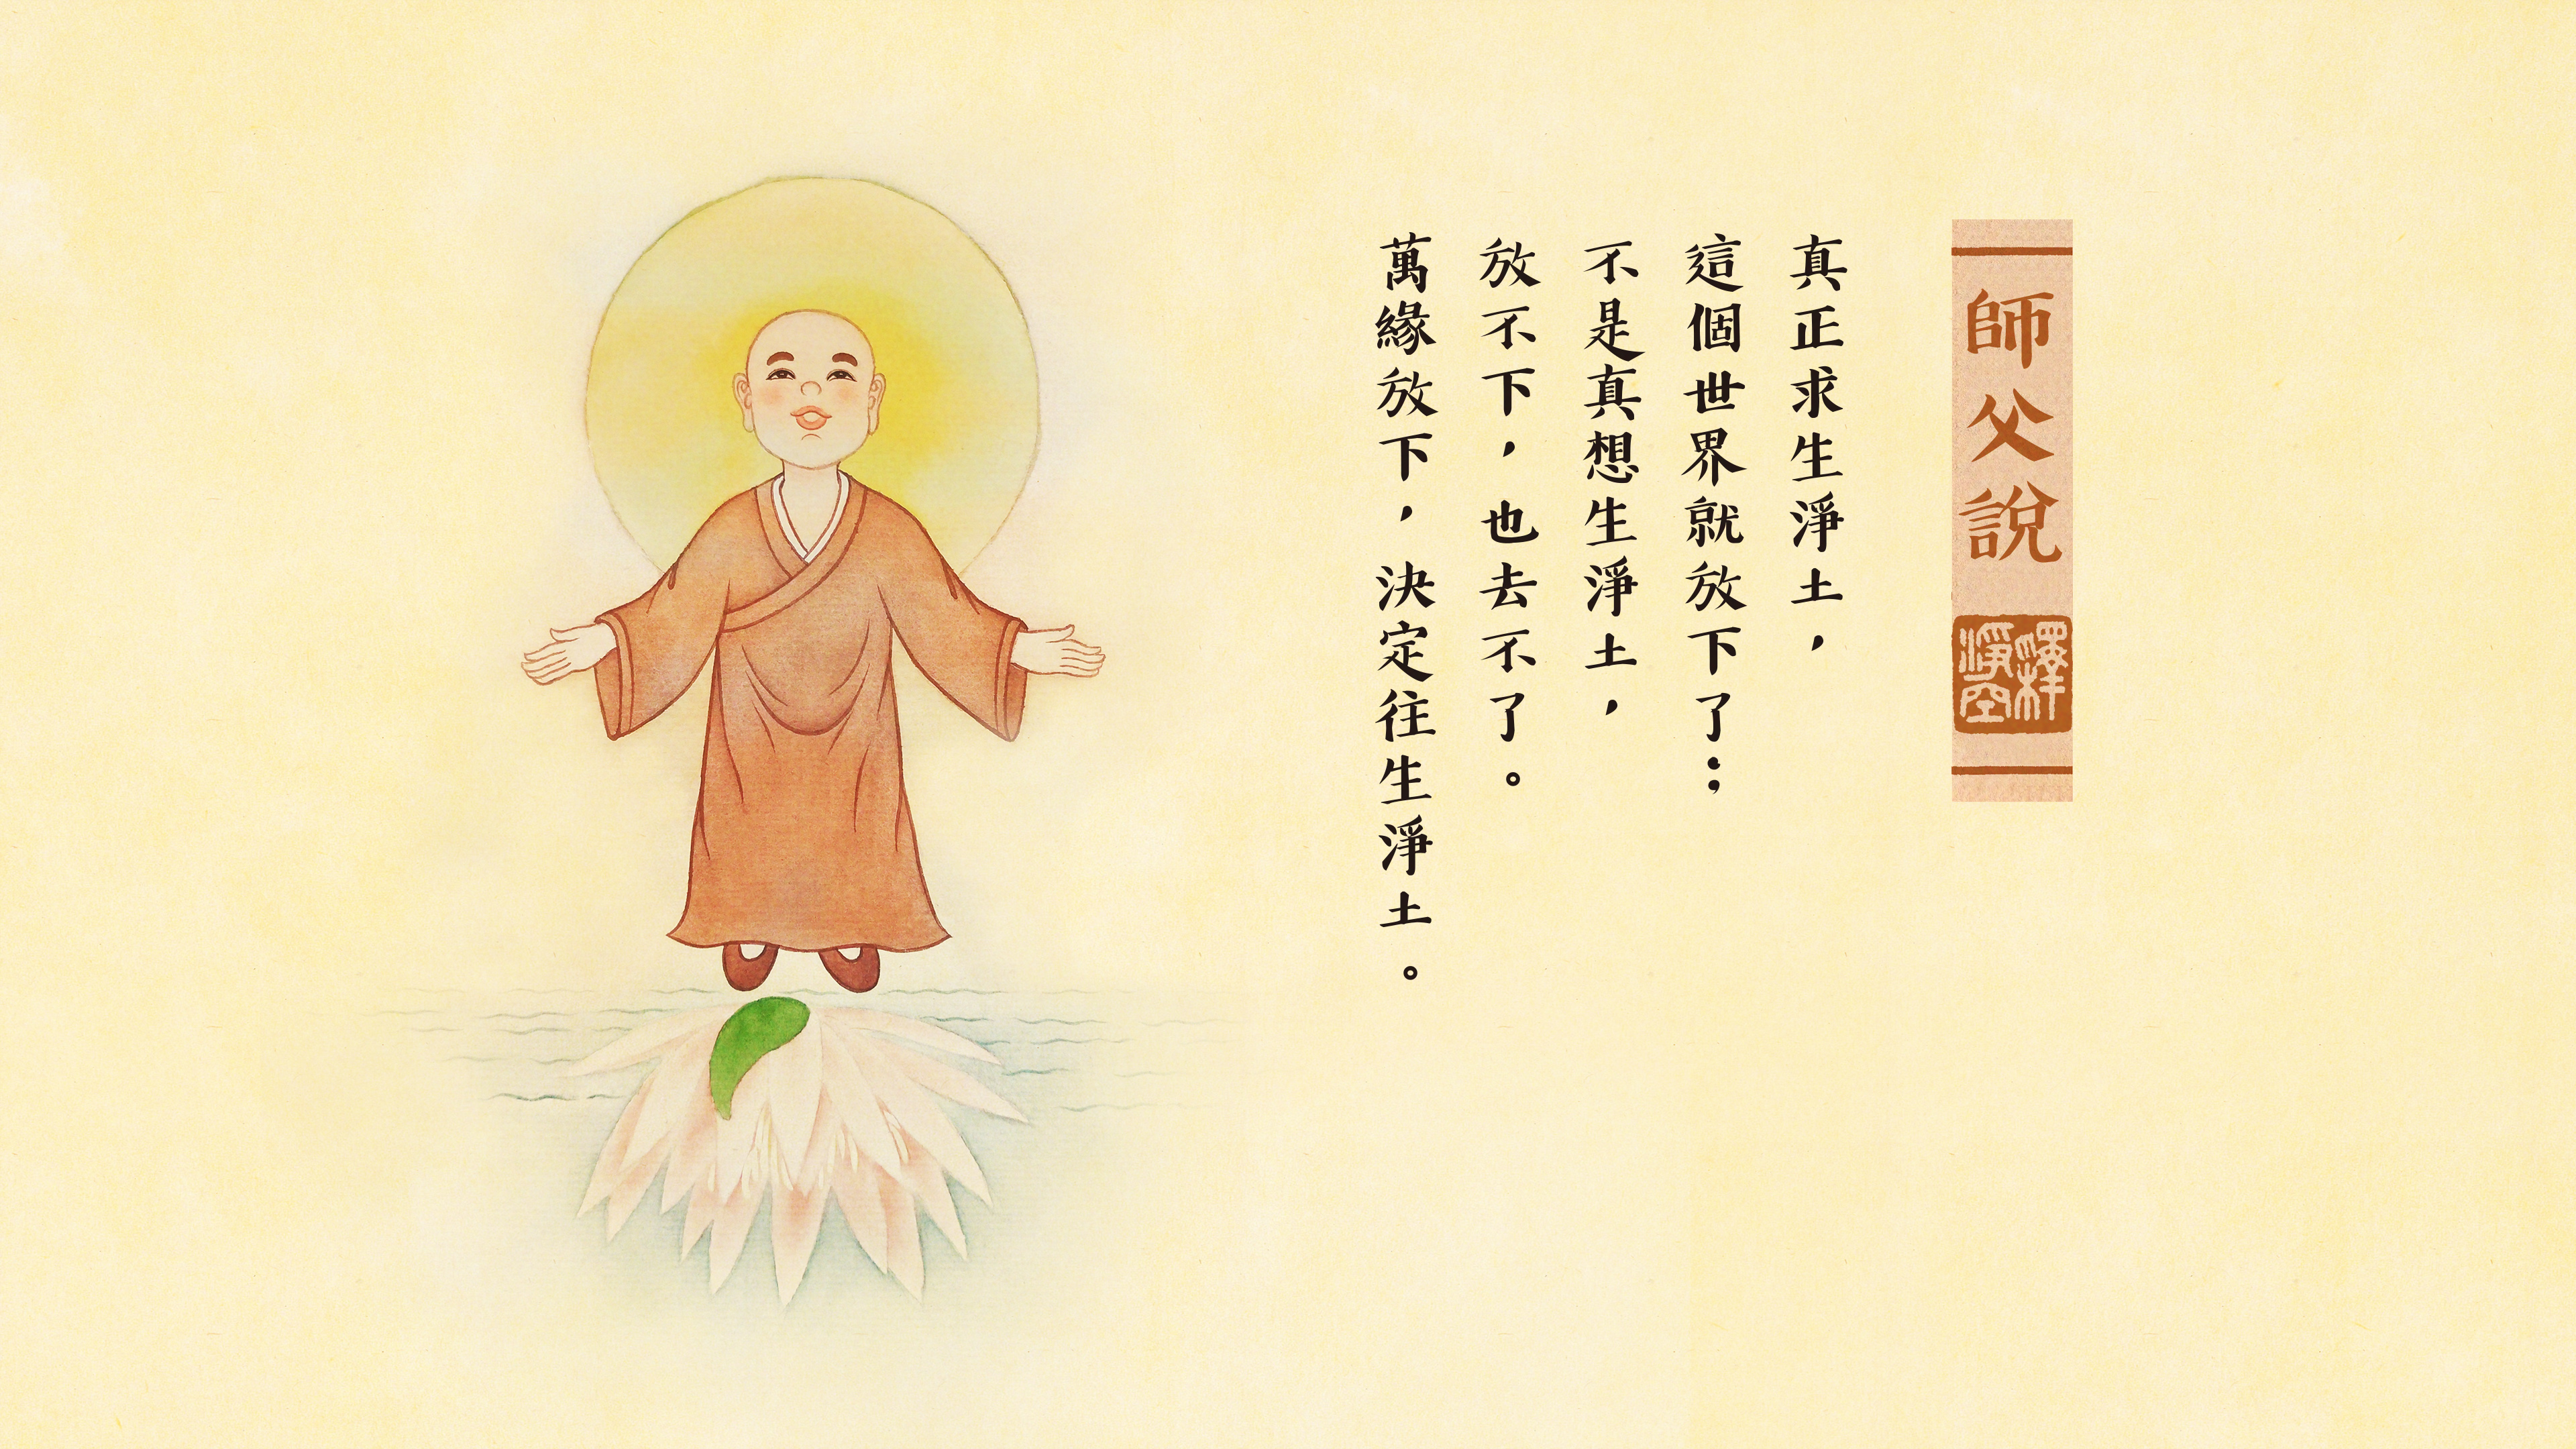 師父說
釋淨空
真正求生淨土，
這個世界就放下了；
不是真想生淨土，
放不下，也去不了。
萬緣放下，決定往生淨土。